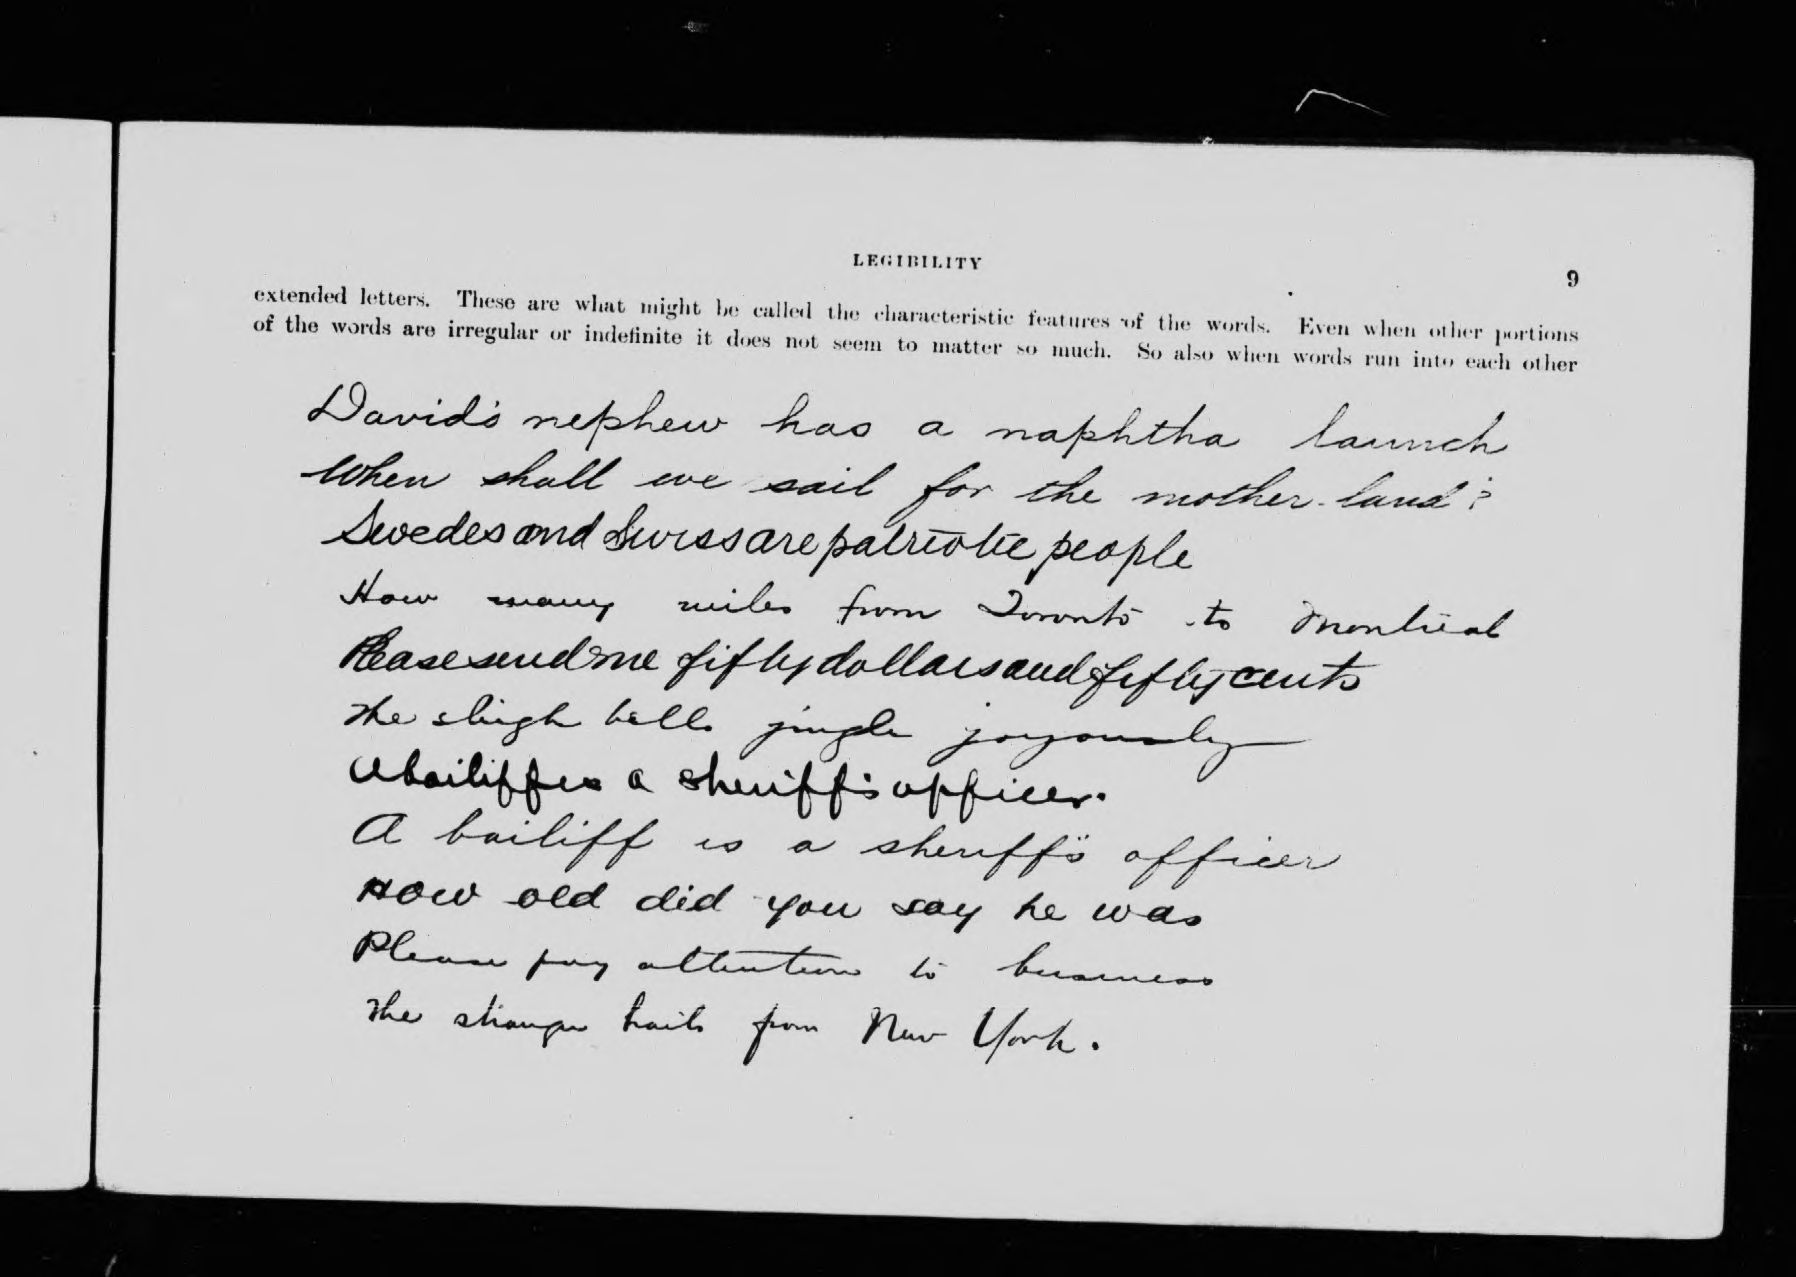 LEGIBILITY
9
extended letters. These are what might be called the characteristic features of the words. Even when other portions
of the words are irregular or indefinite it does not seem to matter so much. So also when words run into each other
David's nephew has a naphtha launch
When shall we sail for the mother-land?
Swedes and Swiss are patriotic people
How many miles from Toronto to Montreal
Please send me fifty dollars and fifty cents
The sleigh bells jingle joyously
A bailiff is a sheriff's officer.
A bailiff is a sheriff's officer
How old did you say he was
Please pay attention to business
The stranger hails from New York.